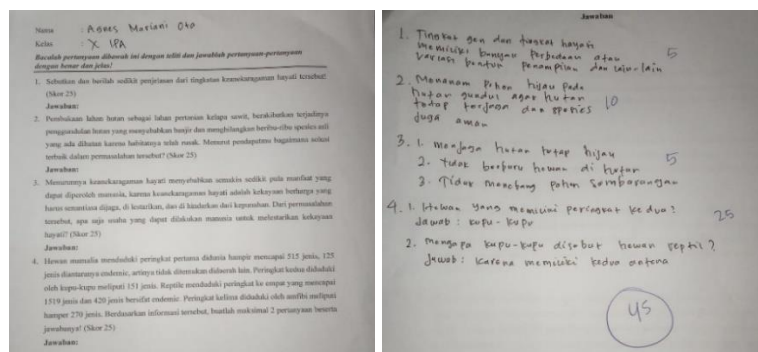 Nama : Agnes Mariani Oto
Kelas : X IPA
Bacalah pertanyaan dibawah ini dengan teliti dan jawablah pertanyaan-pertanyaan
dengan benar dan jelas!
1. Sebutkan dan berilah sedikit penjelasan dari tingkatan keanekaragaman hayati tersebut!
(Skor 25)
Jawaban:
2. Pembukaan lahan hutan sebagai lahan pertanian kelapa sawit, berakibatkan terjadinya
penggundulan hutan yang menyebabkan banjir dan menghilangkan beribu-ribu spesies asli
yang ada dihutan karena habitatnya telah rusak. Menurut pendapatmu bagaimana solusi
terbaik dalam permasalahan tersebut? (Skor 25)
Jawaban:
3. Menurunnya keanekaragaman hayati menyebabkan semakin sedikit pula manfaat yang
dapat diperoleh manusia, karena keanekaragaman hayati adalah kekayaan berharga yang
harus senantiasa dijaga, di lestarikan, dan di hindarkan dari kepunahan. Dari permasalahan
tersebut, apa saja usaha yang dapat dilakukan manusia untuk melestarikan kekayaan
hayati? (Skor 25)
Jawaban:
4. Hewan mamalia menduduki peringkat pertama didunia hampir mencapai 515 jenis, 125
jenis diantaranya endemic, artinya tidak ditemukan didaerah lain. Peringkat kedua diduduki
oleh kupu-kupu meliputi 151 jenis. Reptile menduduki peringkat ke empat yang mencapai
1519 jenis dan 420 jenis bersifat endemic. Peringkat kelima diduduki oleh amfibi meliputi
hamper 270 jenis. Berdasarkan informasi tersebut, buatlah maksimal 2 pertanyaan beserta
jawabanya! (Skor 25)
Jawaban:
Jawaban
1. Tingkat gen dan tingkat hayati
memiliki banyak perbedaan atau
variasi bentuk penampilan dan lain-lain 5
2. Menanam Pohon hijau Pada
hutan gundul agar hutan
tetap terjaga dan spesies 10
juga aman
3. 1. menjaga hutan tetap hijau
2. Tidak berburu hewan di hutan 5
3. Tidak menebang pohon sembarangan
4. 1. Hewan yang memiliki peringkat kedua?
Jawab : kupu-kupu 25
2. mengapa kupu-kupu disebut hewan reptil?
Jawab : karena memiliki kedua antena
45